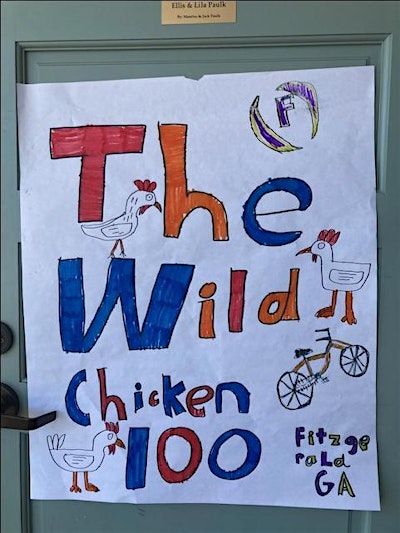 Ellis & Lila Paulk
By: Maurine & Jack Paulk
F
The
Wild
Chicken
100
Fitzge
raLd
GA